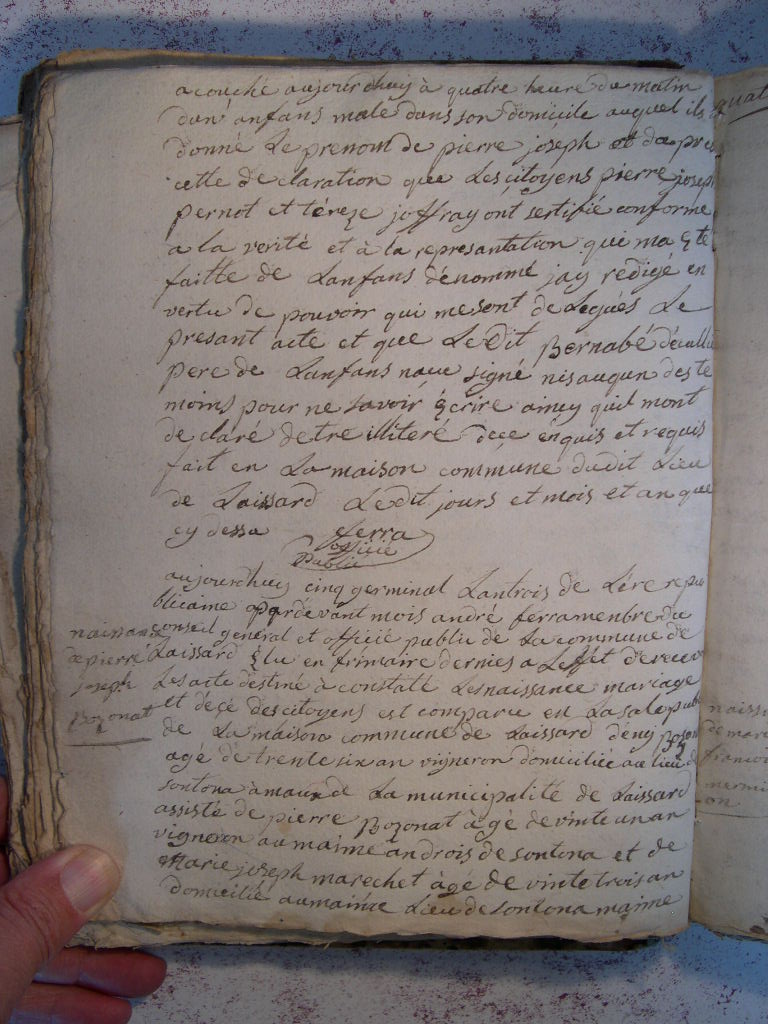 acouché aujourdhuy à quatre heure du matin
dun anfans male dans son domicile auquel ils
donné Le prenom de pierre joséph et da pres
cette declaration que Les citoyens pierre joseph
pernot et téreze joffray ont sertifié conforme
a la verité et à la represantation qui ma été
faitte de Lanfans dénommé jay redigé en
vertu de pouvoir qui me sont delegues Le
presant acte et que Ledit Bernabé
pere de Lanfans na signé nis auqun des te
moins pour ne savoir Ecrire aincy quil mont
declaré detre illiteré dece enquis et requis
fait en La maison commune dudit Lieu
de Laissard Ledit jours et mois et an que
cy dessu ferra
officié
public
aujourdhuy cinq germinal Lantrois de Lére repu
blicaine pardevant mois andré ferra menbre du
conseil general et officié public de La commune de
Laissard Elu en frimaire dernies a Leffét de recevoir
Les acte destiné à constaté Les naissance mariage
et décé des citoyens est comparu en La sale publi
de La maison commune de Laissard dény Bozon
agé de trente six an vigneron domiciliée au lieu de
sontona de La municipalité de Laissard
assisté de pierre Bozonat àgé de vinte un an
vigneron au maime androis de sontona et de
Marie joseph marechet àgé de vinte trois an
domicilié au maime Lieu de sontona maime
naisance
de pierre
joseph
Bozonat
quat
naissa
de mari
francoi
mermi
on